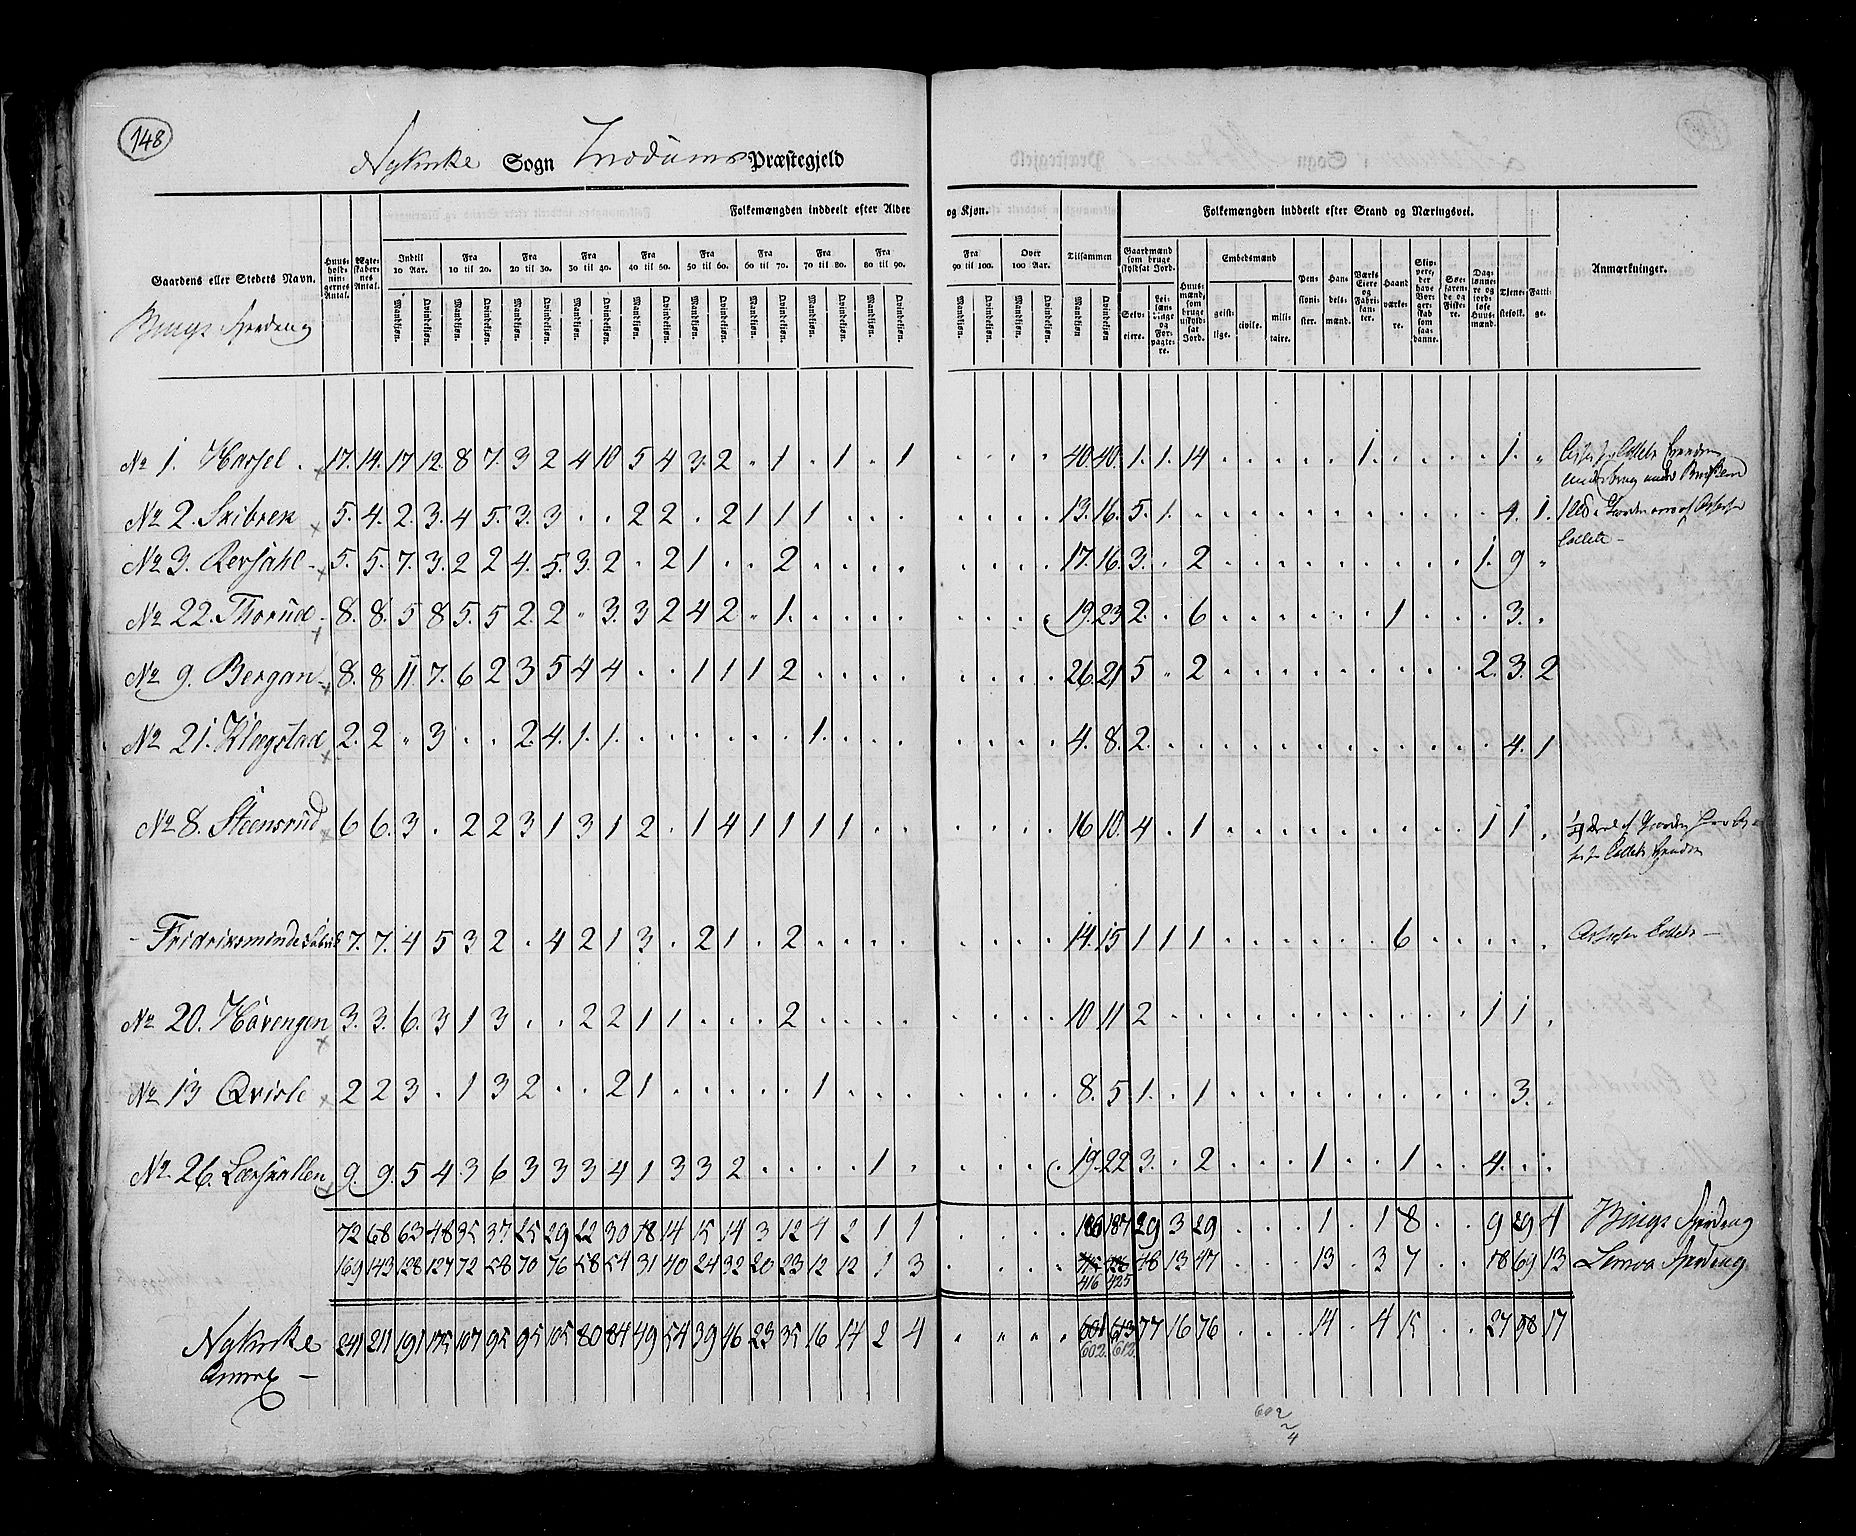 148
Nykirke Sogn Modums Præstegjeld
Gaardens eller Stedets Navn.
Huusholdningernes Antal.
Ægteskabernes Antal.
Folkemængden inddeelt efter Alder og Kjøn.
Indtil 10 Aar. Fra 10 til 20. Fra 20 til 30. Fra 30 til 40. Fra 40 til 50. Fra 50 til 60. Fra 60 til 70. Fra 70 til 80. Fra 80 til 90. Fra 90 til 100. Over 100 Aar. Tilsammen
Mandkjøn. Qvindekjøn.
Folkemængden inddeelt efter Stand og Næringsvei.
Gaardmænd som bruge skyldsat Jord.
Selveiere. Leilændinge og Forpagtere.
Huusmænd, som bruge uskyldsat Jord.
Embedsmænd
geistlige. civile. militaire.
Pensionister.
Handelsmænd.
Værks Eiere og Fabrikanter.
Haandværkere.
Skippere, der have Borgerskab som saadanne.
Søefarende og Fiskere.
Daglønnere og jordløse Huusmænd.
Tjenestefolk.
Fattige.
Anmærkninger.
Bings Fjerding
No 1. Hassel. 17. 14. 17 12. 8 7. 3 2 4 10 5 4 3. 2 . 1 . 1 . 1 . . . . 40. 40. 1. 1. 14 . . . . . 1. . . . . 1.
No 2. Skibrek 5. 4. 2. 3. 4 5. 3. 3 . . 2 2 . 2 1 1 1 . . . . . . . 13. 16. 5. 1. . . . . . . . . . . . 4. 1.
No 3. Kersahl 5. 5. 7. 3. 2 2 4. 5. 3. 2 . 2 1 . . 2 . . . . . . . . 17. 16. 3. . 2 . . . . . . . . . 1. 9
No 22. Thorud 8. 8. 5 8 5. 5 2. 2 . 3. 3 2 4 2 . 1. . . . . . . . . 19. 23 2. . 6 . . . . . . 1 . . . 3. .
No 9. Bergan 8. 8 11. 7. 6 2 3 5 4 4 . . 1 1 1 2 . . . . . . . . 26. 21 5 . 2 . . . . . . . . . 2. 3. 2
No 21. Klægstad 2. 2 . 3 . . 2. 4. 1. 1. . . . . . . 1. . . . . . . . 4. 8. 2. . . . . . . . . . . . . 4. 1
No 8. Steensrud 6 6. 3 . 2 2 3 1 3 1 2 . 1 4 1 1 1 1 . . . . . . 16 10. 4 . 1 . . . . . . . . . 1 1 .
Fridriksminde 7. 7. 4 5 3 2 . 4 2 1 3 . 2 1 . 2 . . . . . . . . 14. 15 1 1 1 . . . . . . 6 . . . . .
No 20. Hovengen 3. 3. 6. 3 1 3 . . 2 2 1 1 . . . 2 . . . . . . . . 10 11 2 . . . . . . . . . . . 1 1 .
No 13 Qvisle 2 2 3 . 1 3 2 . . 2 1 . . . . . 1 . . . . . . . 8. 5 1. . 1 . . . . . . . . . . 3. .
No 26. 9. 9. 5 4 3 6 3 3 3 4 1 3 3 2 . . . . 1 . . . . . 19. 22 3. . 2 . . . 1 . . 1 . . 4. . .
72 68 63 48 35 37 25 29 22 30 18 14 15 14 3 12 4 2 1 1 . . . . 186 187 29 3 29 . . . 1 . 1 8 . . 9 29 4 Bings Fjerding
169 143 128 127 72 58 70 76 58 54 31 40 24 32 20 23 12 12 1 3 . . . . 416 425 48 13 47 . . . 13 . 3 7 . . 18 69 13 Fjerding
Nykirke Annex 241 211 191 175 107 95 95 105 80 84 49 54 39 46 23 35 16 14 2 4 . . . . 601 613 77 16 76 . . . 14 . 4 15 . . 27 98 17
602. 612.
602
2
4